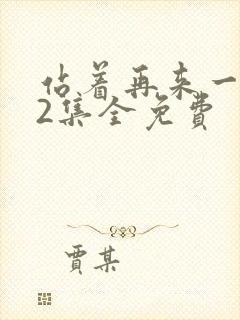 佔着再来一
2集全免费
贾某